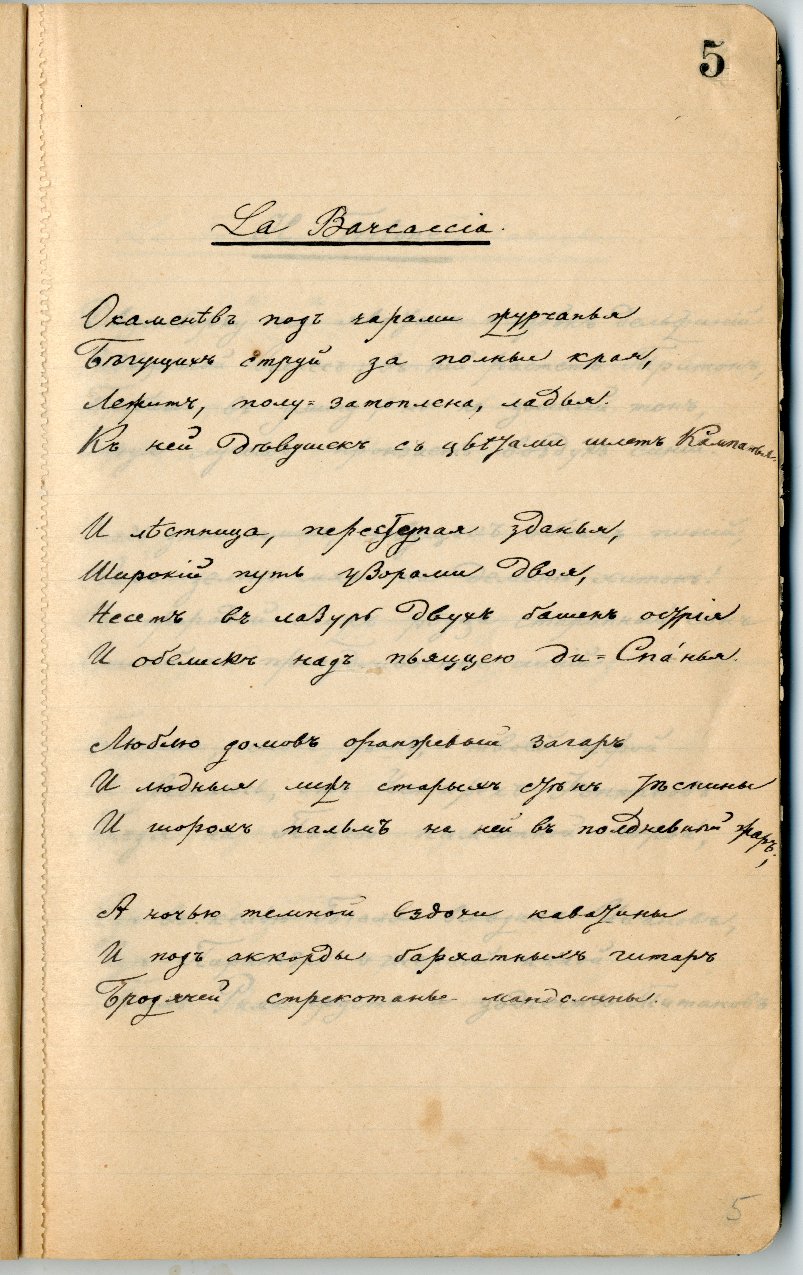 5
La Barcaccia.
Окаменѣвъ подъ чарами журчанья
Бѣгущихъ струй за полные края,
Лежитъ, полу=затоплена, ладья.
Къ ней дѣвушекъ съ цвѣтами шлетъ Кампанья.
И лѣстница, переступая зданья,
Широкій путь узорами двоя,
Несетъ въ лазурь двухъ башенъ острія
И обелискъ надъ пьяццею ди=Спа́нья.
Люблю домовъ оранжевый загаръ
И людныя межъ старыхъ стѣнъ тѣснины
И шорохъ пальмъ на ней въ полдневный жаръ;
А ночью темной вздохи каватины
И подъ аккорды бархатныхъ гитаръ
Бродячей стрекотанье мандолины.
5